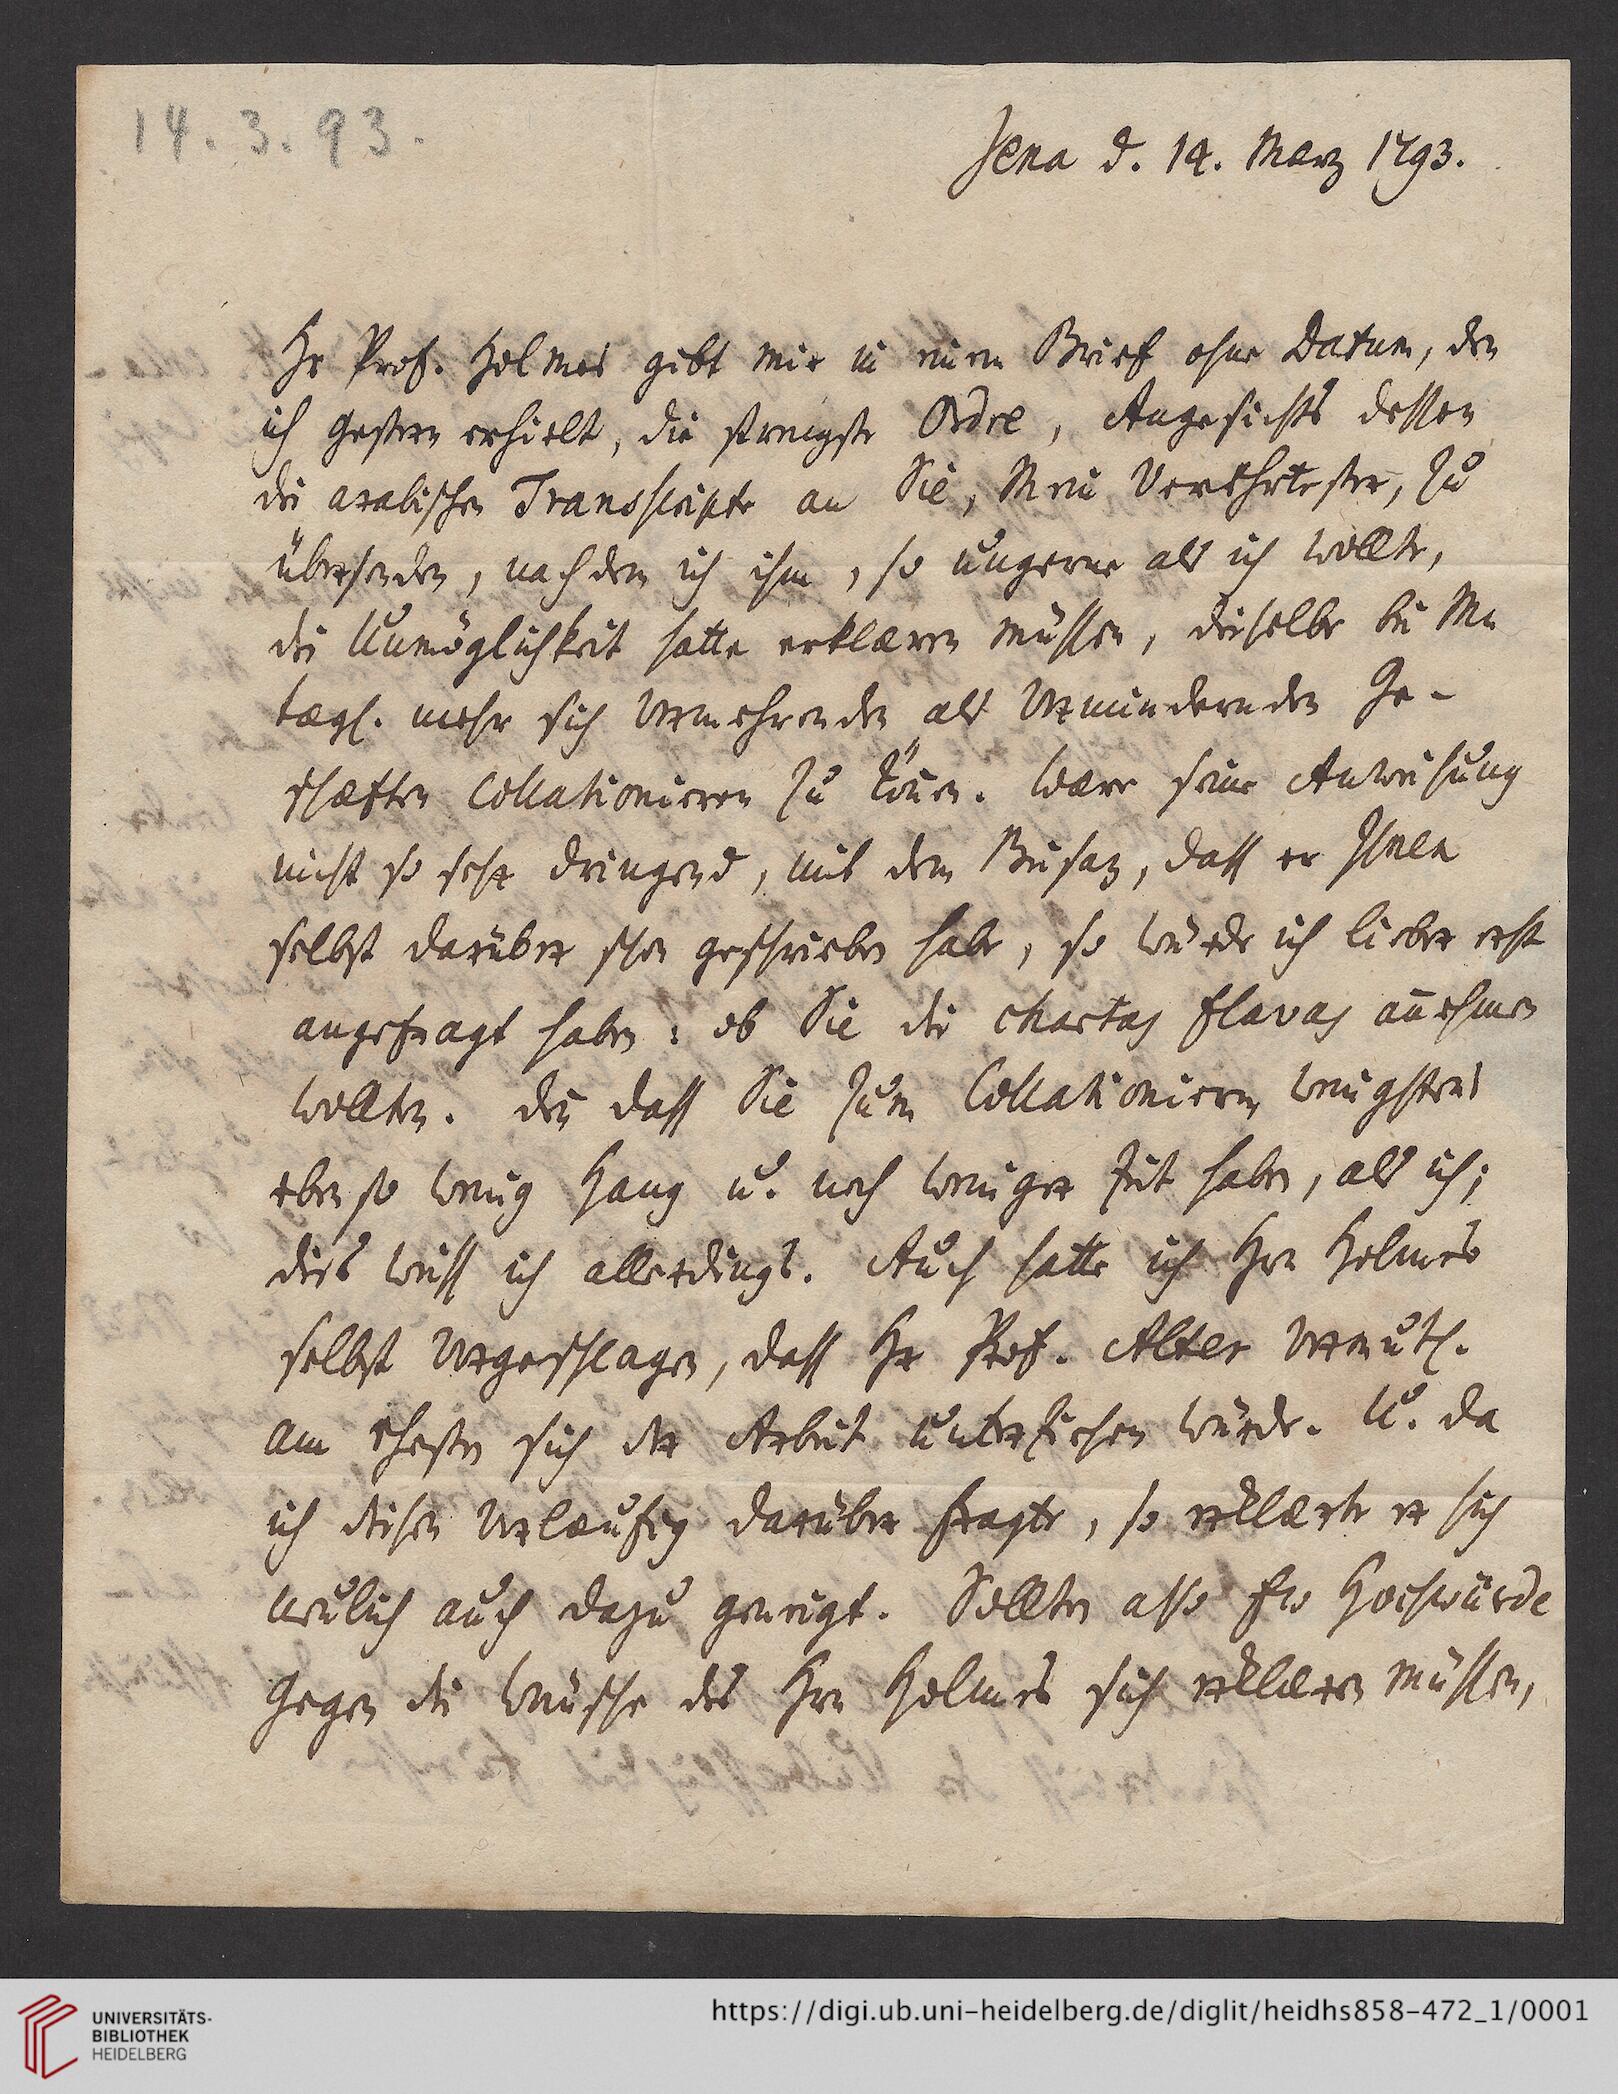 14. 3. 93.
Jena d. 14. März 1793.
Hr Prof. Holmes gibt mir in einem Brief ohne Datum, den
ich gestern erhielt, die strengste Ordre, Angesichts dessen
die arabischen Transscripte an Sie, Mein Verehrtester, zu
übersenden, nachdem ich ihm, so ungerne als ich wollte,
die Unmöglichkeit hatte erklæren müssen, dieselbe bei
tægl. mehr sich vermehrenden als vermindernden Ge-
schæften Collationieren zu können. Wære seine Anweisung
nicht so sehr dringend, mit dem Beisaz, dass er Ihnen
selbst darüber schon geschrieben habe, so würde ich lieber erst
angefragt haben: ob Sie die chartas flavas annehmen
wollten. Den dass Sie zum Collationieren wenigstens
eben so wenig Hang u. noch weniger Zeit haben, als ich;
dies weiss ich allerdings. Auch hatte ich Hrn Holmes
selbst vorgeschlagen, dass Hr Prof. Alter vermutl.
am ehesten sich der Arbeit unterziehen würde. U. da
ich diesen vorlæufig darüber fragte, so erklærte er sich
neulich auch dazu geneigt. Sollten also Ew Hochwürde
gegen die Wünsche des Hrn Holmes sich erklæren müssen,
UNIVERSITÄTS-
BIBLIOTHEK
HEIDELBERG
https://digi.ub.uni-heidelberg.de/diglit/heidhs858-472_1/0001